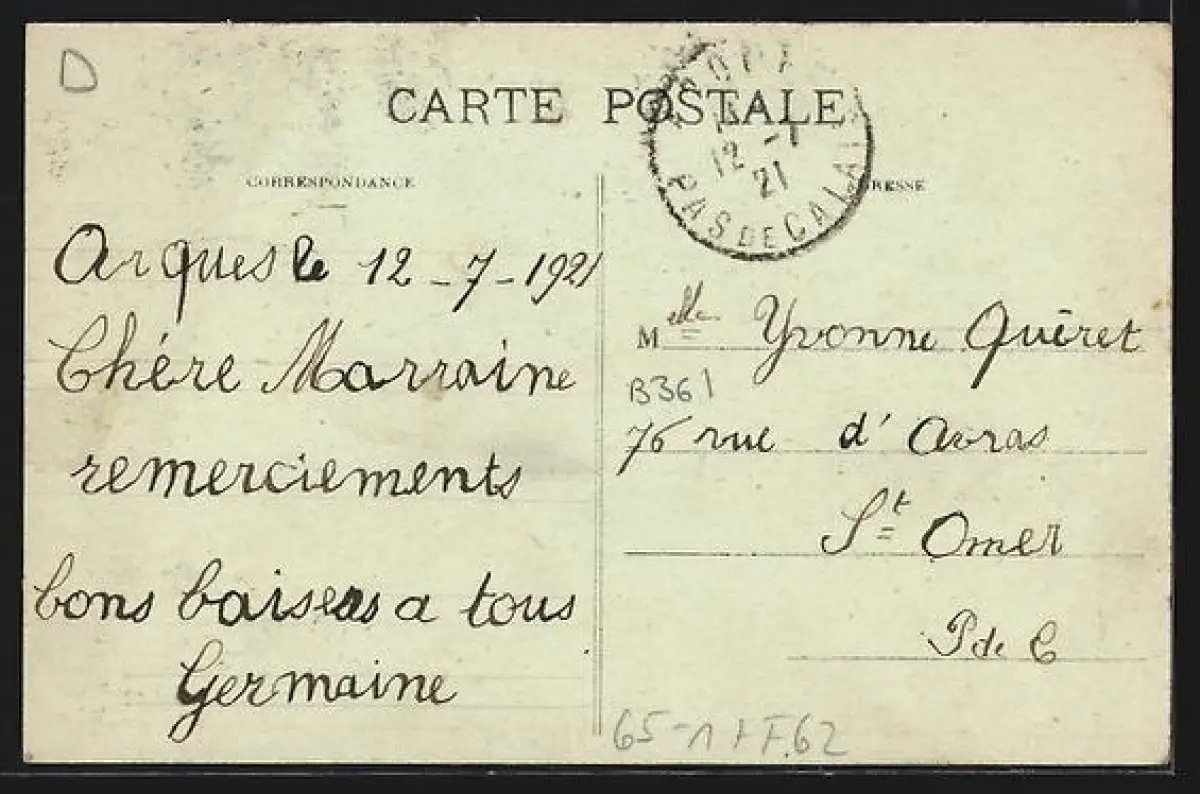 D
CARTE POSTALE
12 -7
21
PAS DE CALAIS
CORRESPONDANCE
RESSE
Arques le 12-7-1921
Chére Marraine
remerciements
bons baisers a tous
Germaine
Melle Yvonne Quéret
B361
76 rue d' Arras
St Omer
P de C
65-1 + F.62